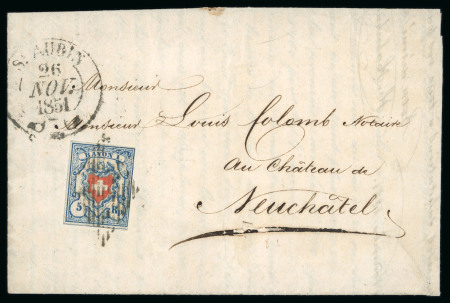 ST AUBIN
26
NOV.
1851
Monsieur
Monsieur Louis Colomb Notaire
Au Château de
Neuchâtel
RAYON
5 R